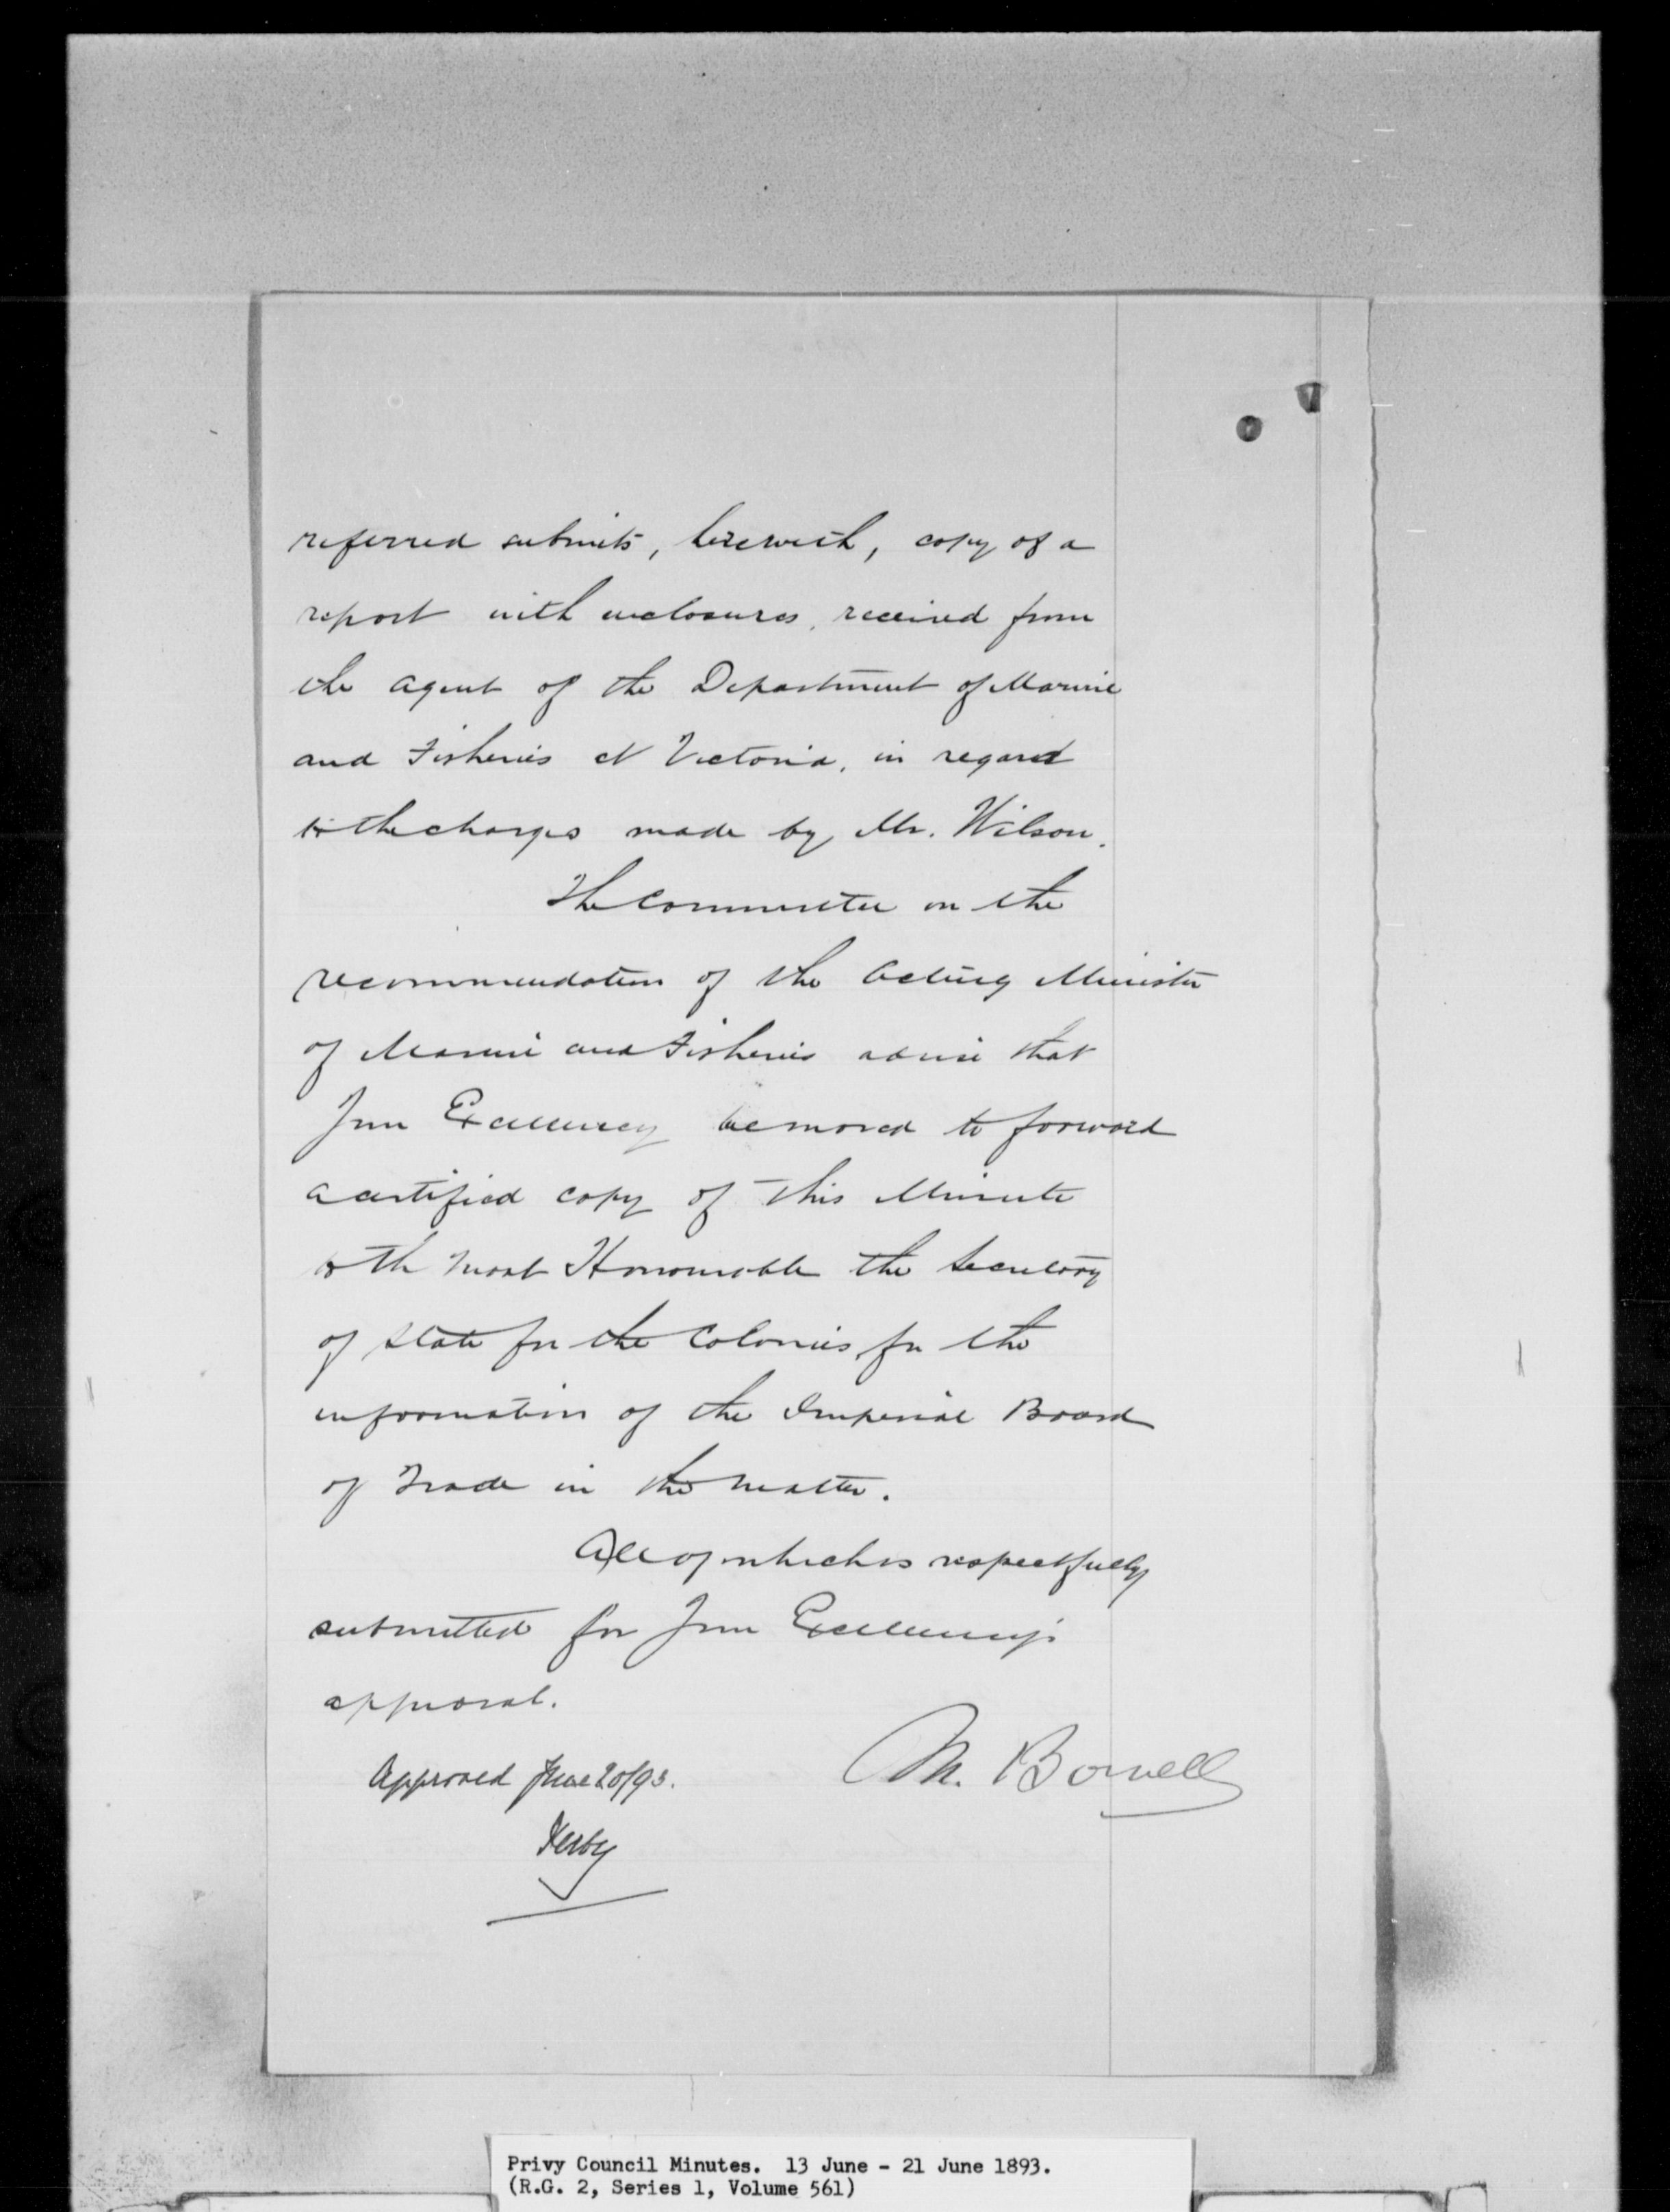 referred submits, herewith, copy of a
report with enclosures, received from
the Agent of the Department of Marine
and Fisheries at Victoria, in regard
to the charges made by Mr. Wilson.
The Committee on the
recommendation of the Acting Minister
of Marine and Fisheries advise that
Your Excellency be moved to forward
a certified copy of this Minute
to the Most Honourable the Secretary
of State for the Colonies for the
information of the Imperial Board
of Trade in the matter.
All of which is respectfully
submitted for Your Excellency's
approval.
M. Bowell
Approved June 20/93.
Derby
Privy Council Minutes. 13 June - 21 June 1893.
(R.G. 2, Series 1, Volume 561)